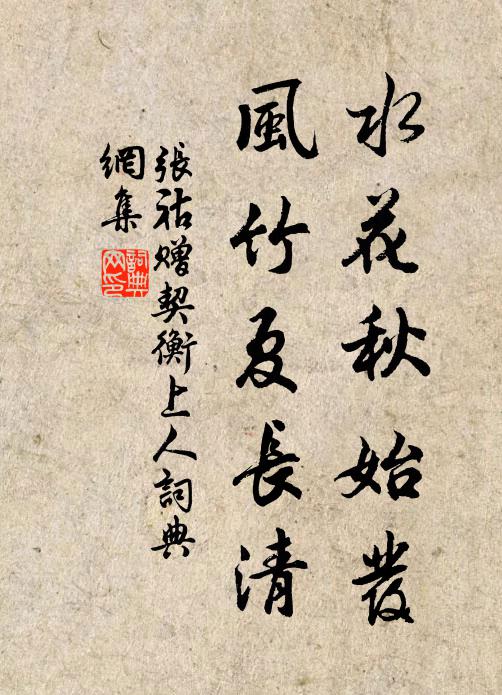 水花秋始發
風竹夏長清
張祜贈契衡上人詞典
網集
詞典
网印